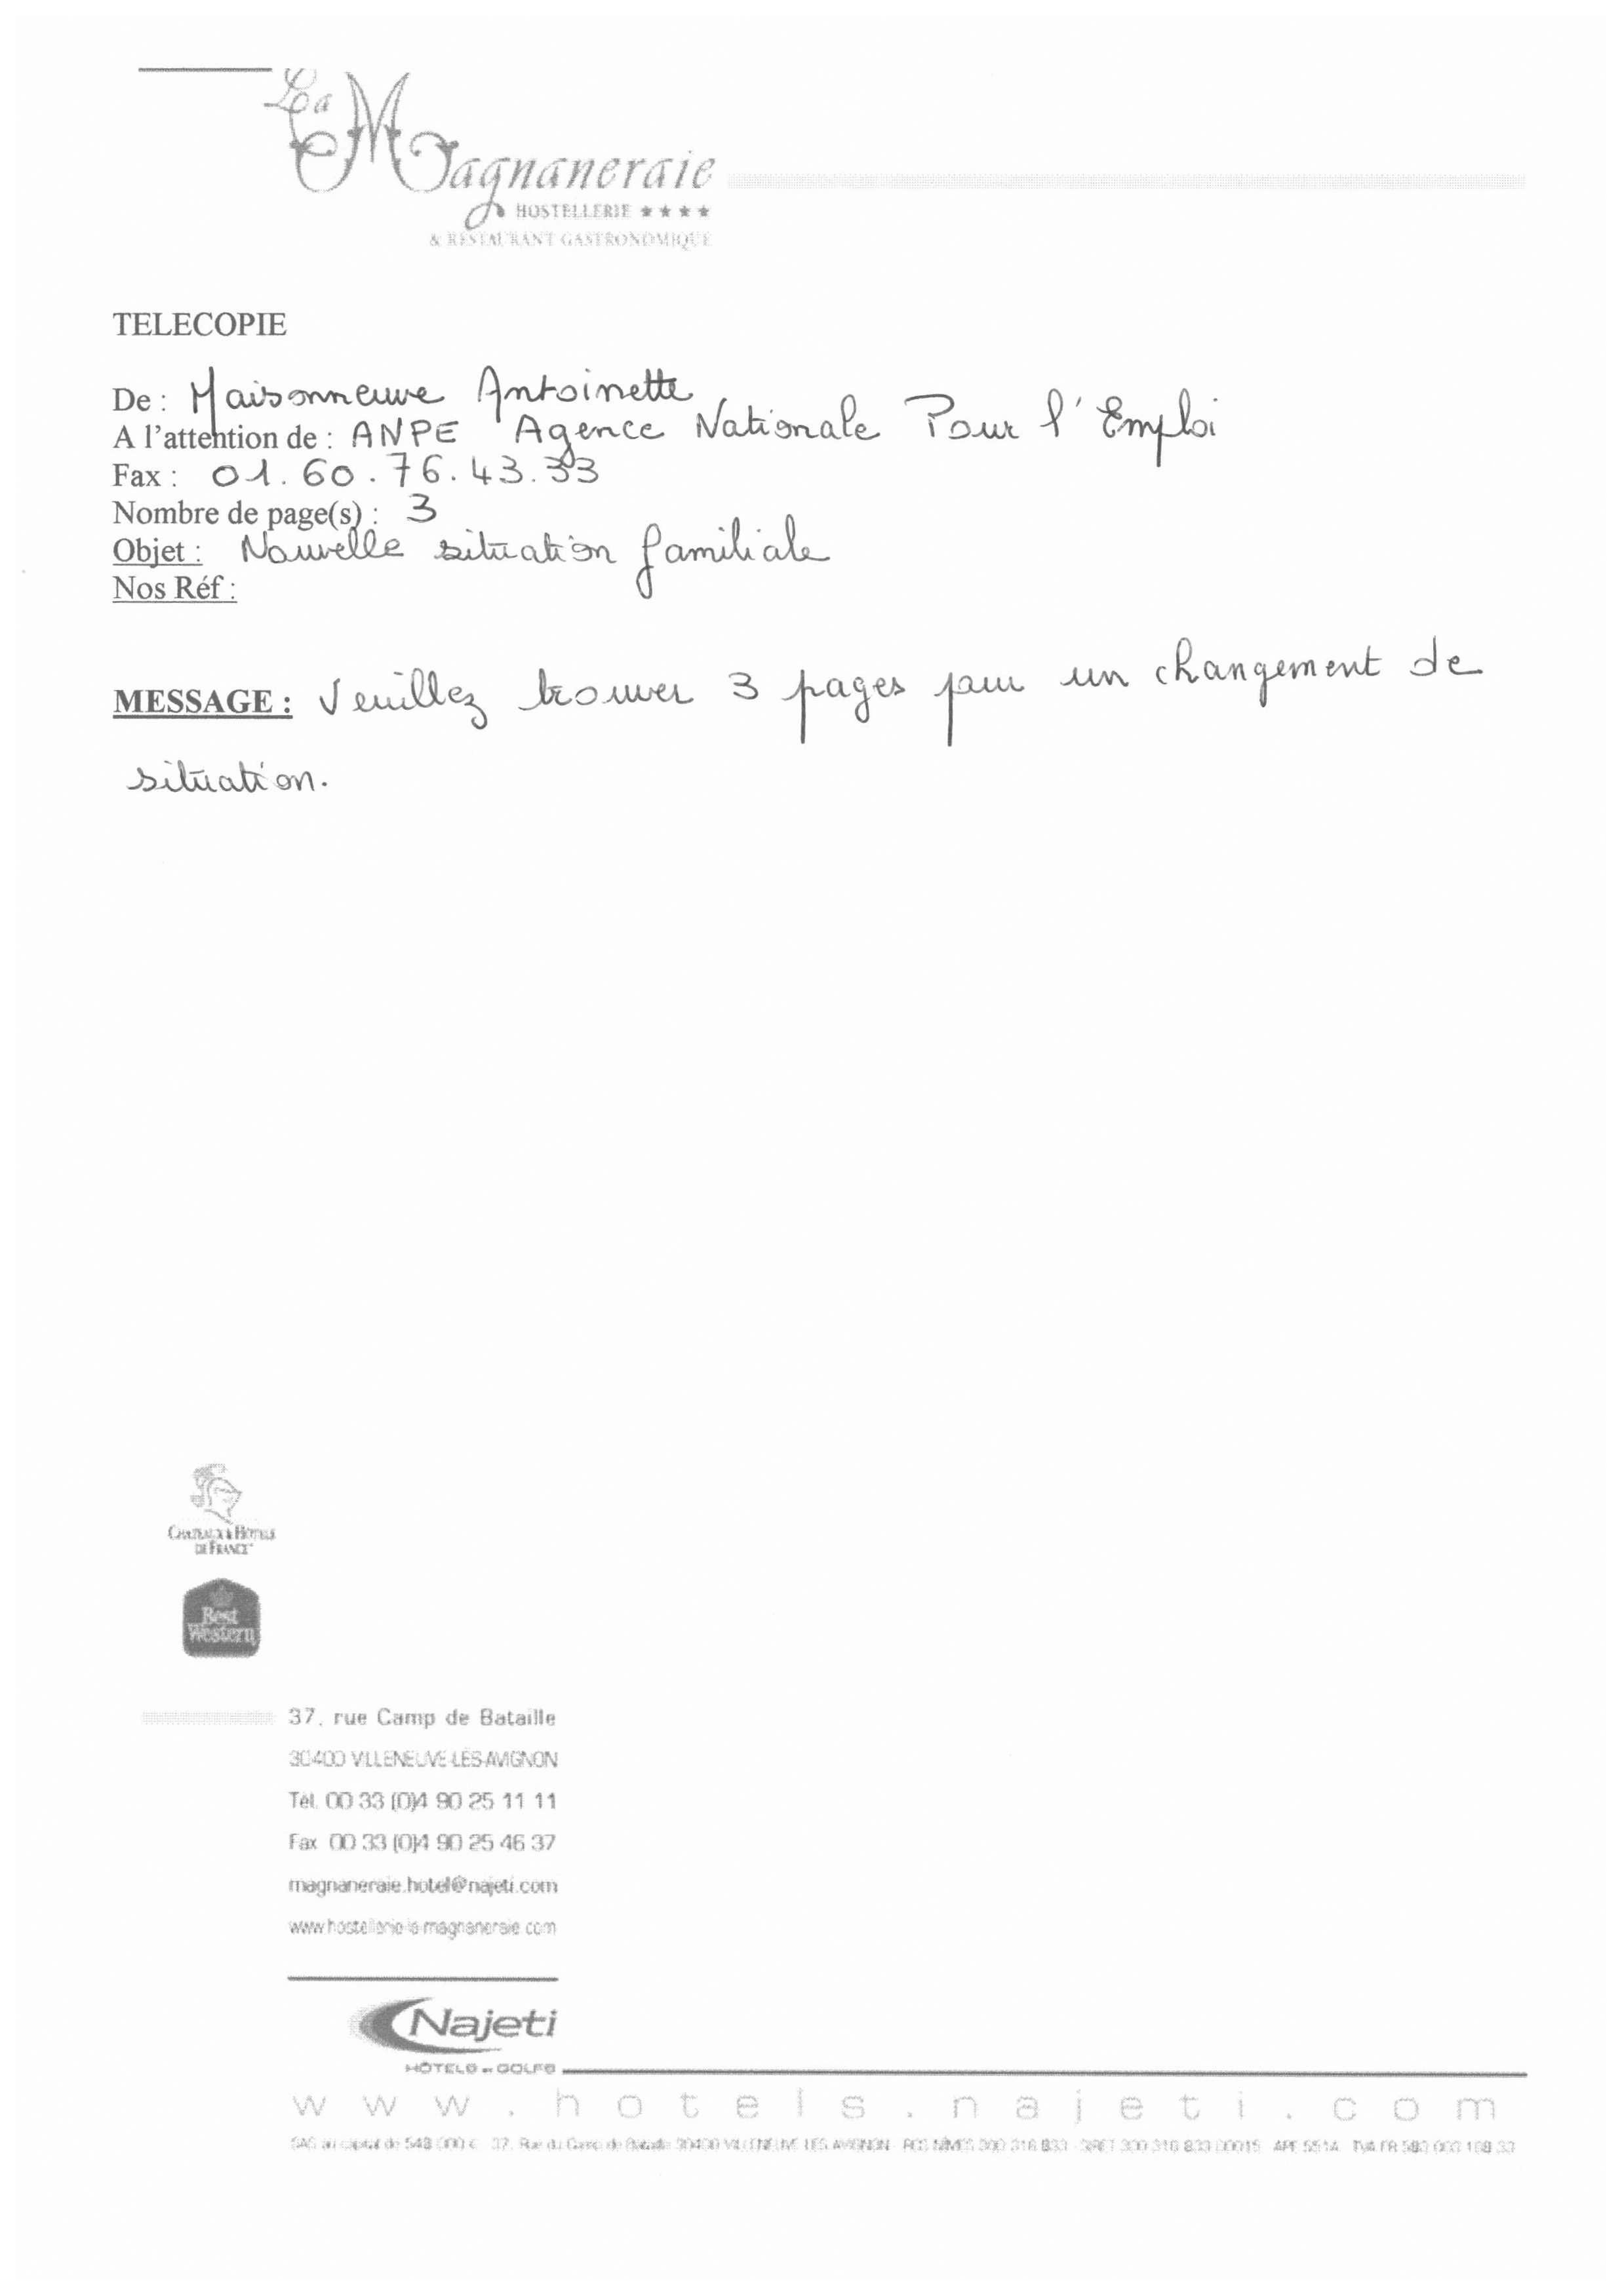 La Magnaneraie
HOSTELLERIE ★★★★
& RESTAURANT GASTRONOMIQUE
TELECOPIE
De : Maisonneuve Antoinette
A l'attention de : ANPE Agence Nationale Pour l'Emploi
Fax : 01.60.76.43.33
Nombre de page(s) : 3
Objet : Nouvelle situation familiale
Nos Réf :
MESSAGE : Veuillez trouver 3 pages pour un changement de
situation.
CHATEAUX & HOTELS
DE FRANCE
Best
Western
37, rue Camp de Bataille
30400 VILLENEUVE-LÈS-AVIGNON
Tél. 00 33 (0)4 90 25 11 11
Fax 00 33 (0)4 90 25 46 37
magnaneraie.hotel@najeti.com
www.hostellerie-la-magnaneraie.com
Najeti
HÔTELS et GOLFS
www.hotels.najeti.com
SAS au capital de 548 000 € 37, Rue du Camp de Bataille 30400 VILLENEUVE LES AVIGNON RCS NÎMES 300 316 833 SIRET 300 316 833 00015 APE 551A TVA FR